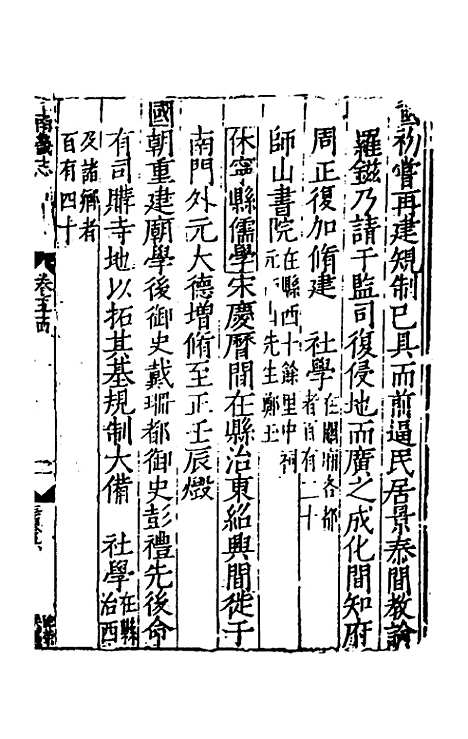 初嘗再建規制已具而前逼民居景泰間教諭
羅鎡乃請于監司復侵地而廣之成化間知府
周正復加脩建　社學在關廂各都者百有二十
師山書院在縣西十餘里中祠元師山先生鄭玉
休寧縣儒學宋慶曆間在縣治東紹興間徙于
南門外元大德增脩至正壬辰燬
國朝重建廟學後御史戴珊都御史彭禮先後命
有司購寺地以拓其基規制大備　社學在縣治西
及諸鄉者百有四十
南畿志
卷五十四